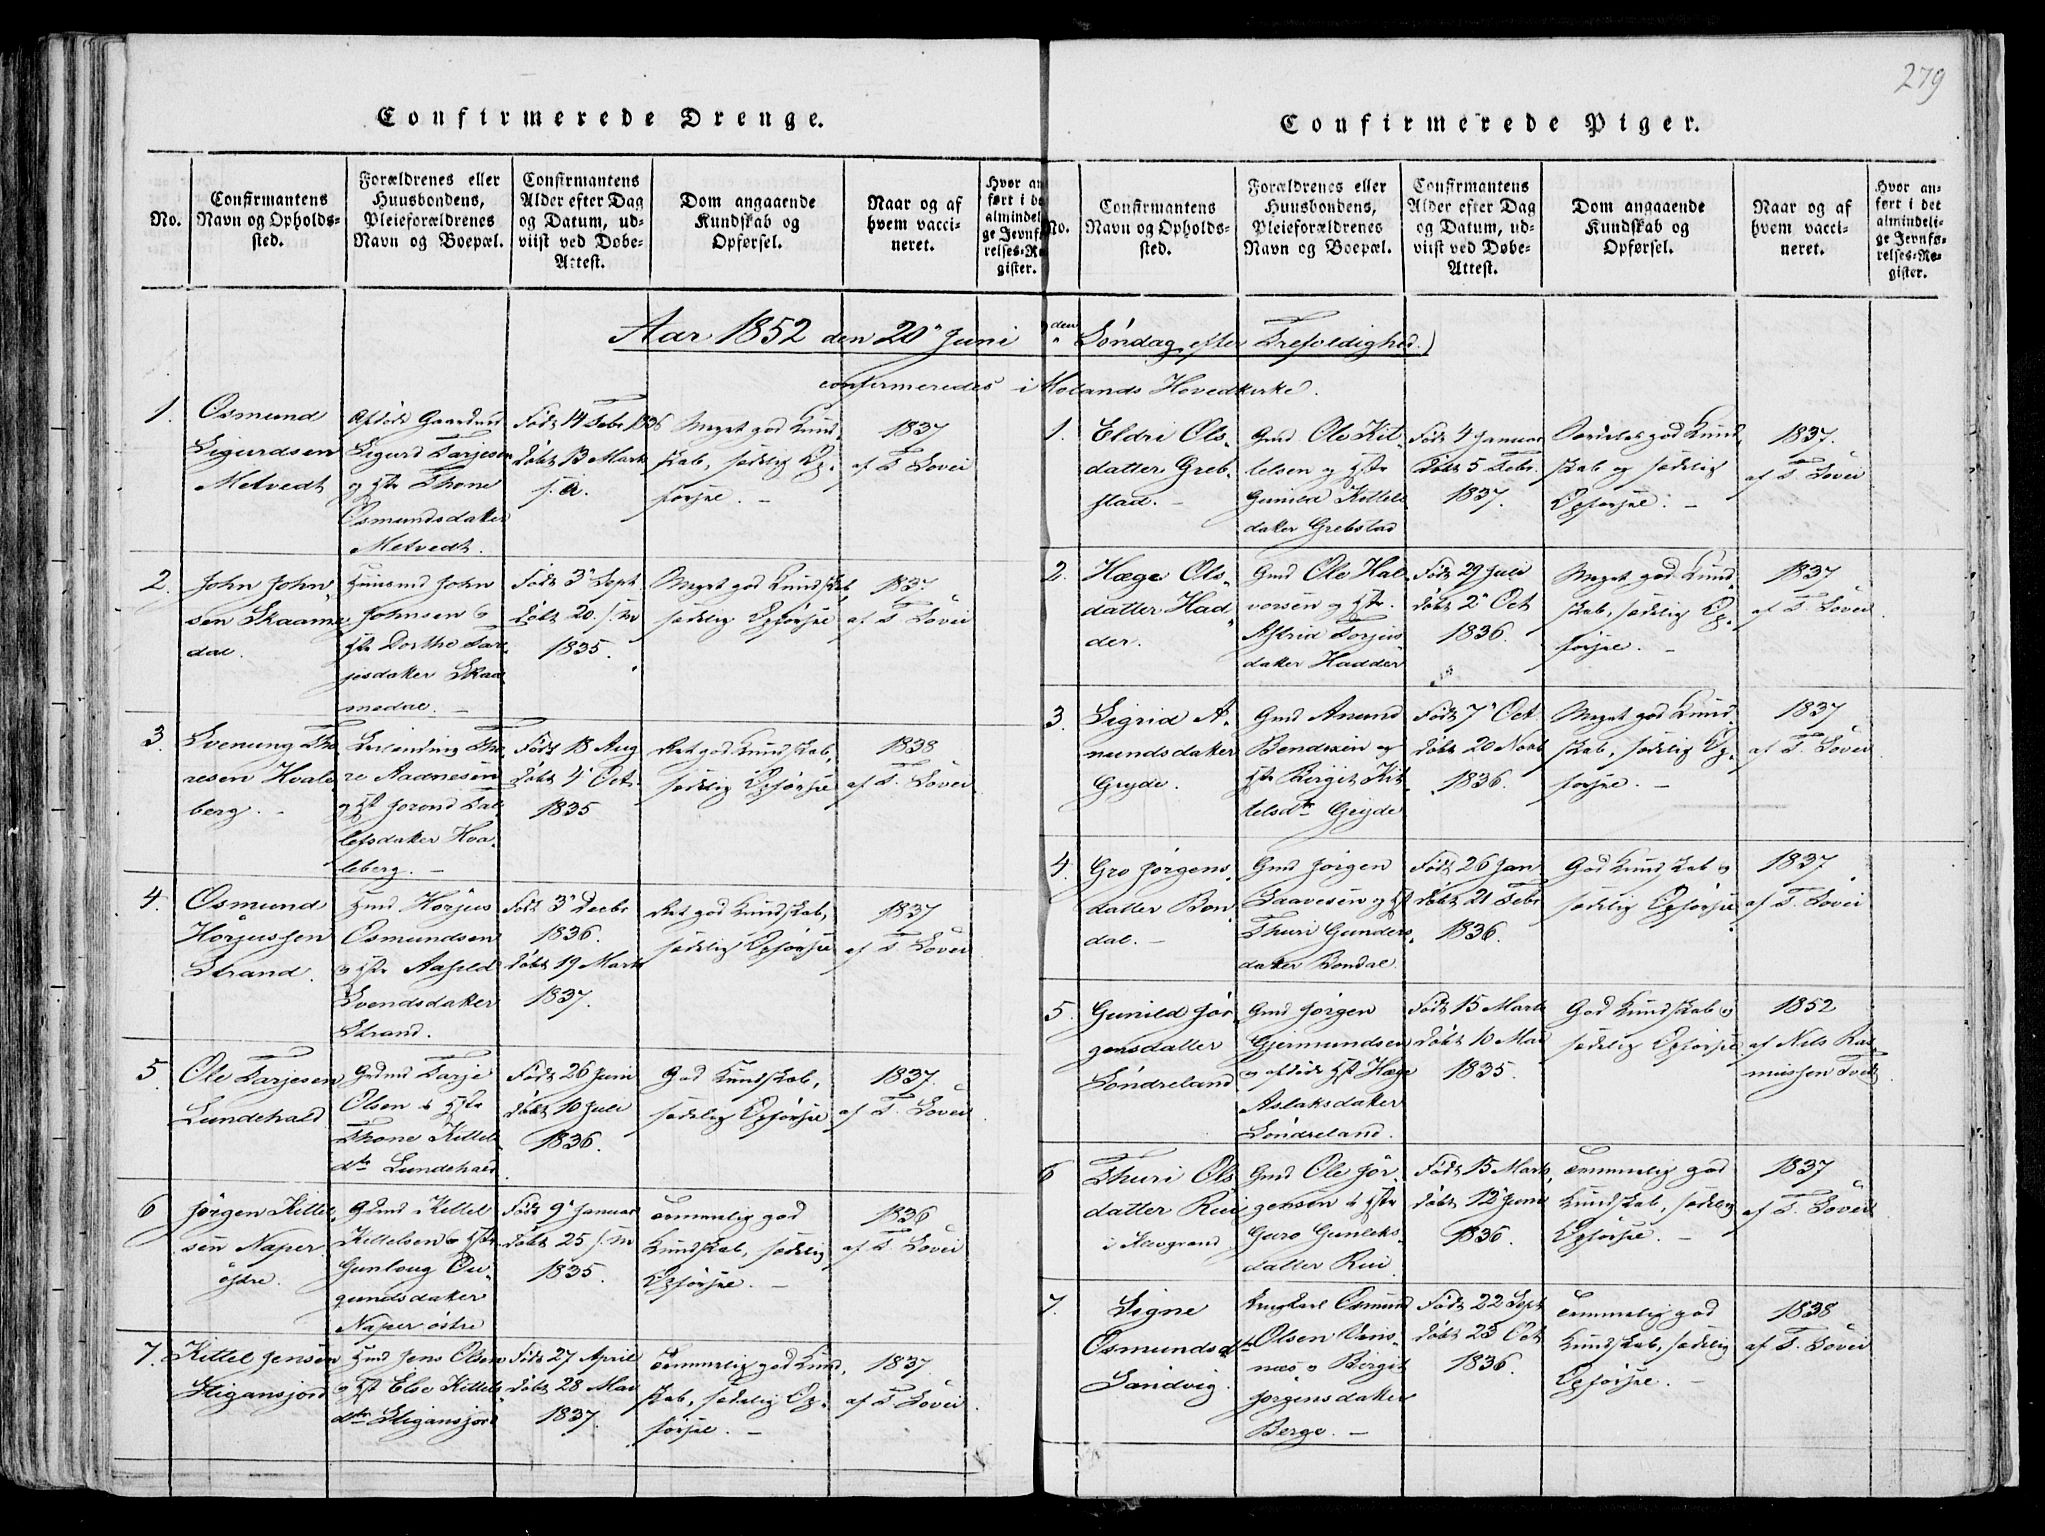 279
Confirmerede Drenge.
No.
Confirmantens
Navn og Opholds-
sted.
Forældrenes eller
Huusbondens,
Pleieforældrenes
Navn og Boepæl.
Confirmantens
Alder efter Dag
og Datum, ud-
viist ved Døbe-
Attest.
Dom angaaende
Kundskab og
Opførsel.
Naar og af
hvem vacci-
neret.
Hvor an
ført i de
almindel
ge Jevnf
relses-Re
gister.
Aar 1852 den 20n Juni
confirmeredes i
1.
Osmund
Sigurdsen
Metvedt
Afdøde Gaardmd
Sigurd Tarjesen
og Hstr Thone
Osmundsdatter
Metvedt.
Født 14 Febr 1836
Døbt 13 Marts
s. A.
Meget god Kund-
skab, sædelig Op-
førsel. -
1837
af T. Lovei
2.
John John-
sen Skaame
dal.
Huusmd John
Johnsen &
Hstr Dorthe Tar-
jesdatter Skaa-
medal. -
Født 3 Sept
Døbt 20. s. M
1835.
Meget god Kundskab,
sædelig Opførsel
1837.
af T. Lovei
3.
Svenung Tho
resen Kvale
berg. -
Tho-
re Aadnesen
og Hst Jorond Tal
lefsdatter Kva-
leberg. -
Født 18 Aug
Døbt 4 Oct.
1835
Ret god Kundskab,
sædelig Opførsel
1838
af T. Lovei
4.
Osmund
Hørjussen
Strand.
Hmd Hørjus
Osmundsen
& Hstr Aasild
Svendsdatter
Strand.
Født 3 Decbr
1836.
Døbt 19 Marts
1837.
Ret god Kundskab,
sædelig Opførsel
1837
af T. Lovei
5.
Ole Tarjesen
Lundehald
Gdmd Tarje
Olsen & Hstr
Thone Kittel
dtr Lundehald
Født 26 Juni
Døbt 10 Juli
1836.
God Kundskab,
sædelig Opførsel
1837.
af T. Lovei
6
Jørgen Kittel
sen Naper
østre.
Gdmd Kittel
Kittelsen & Hstr
Gunloug Ou-
gundsdatter
Naper østre
Født 9 Januar
Døbt 25 s. M
1835.
Temmelig god
Kundskab, sædelig
Opførsel. -
1836
af T. Lovei
7.
Kittel Jensen
Stigansjord
Hmd Jens Olsen
& Hst Else Kittels
dtr Stigansjord
Født 27 April
Døbt 28 Mai
1837.
Temmelig god Kund,
skab, sædelig Op-
førsel. -
1837
af T. Lovei
Confirmerede Piger.
No.
Confirmantens
Navn og Opholds-
sted.
Forældrenes eller
Huusbondens,
Pleieforældrenes
Navn og Boepæl.
Confirmantens
Alder efter Dag
og Datum, ud-
viist ved Døbe-
Attest.
Dom angaaende
Kundskab og
Opførsel.
Naar og af
hvem vacci-
neret.
Hvor an-
ført i det
almindeli-
ge Jevnfø-
relses-Re-
gister.
den Søndag efter Trefoldighed.)
Molands Hovedkirke.
1.
Eldri Ols-
datter Greb-
stad. -
Gmd Ole Kit-
telsen og Hstr
Gunild Kittels
datter Grebstad
Født 4 Januar
Døbt 5 Febr.
1837.
Særdeles god Kund,
skab og sædelig
Opførsel. -
1837.
af T. Lovei
2.
Hæge Ols-
datter Had
der.
Gmd Ole Hal
vorsen og Hstr.
Astrid Torjus
datter Hadder
Født 29 Juli
Døbt 2 Oct
1836.
Meget god Kund-
skab, sædelig Op-
førsel. -
1837
af T. Lovei
3
Sigrid A-
nundsdatter
Gryde.
Gmd Anund
Bendixen og
Hstr Birgit Kit
telsdtr Gryde
Født 7 Oct
Døbt 20 Novb
1836.
Meget god Kund-
skab, sædelig Op-
førsel. -
1837
af T. Lovei
4.
Gro Jørgens-
datter Bon-
dal. -
Gmd Jørgen
Saavesen og Hst
Thuri Gunders-
datter Bondal
Født 26 Jan
Døbt 21 Febr
1836.
God Kundskab &
sædelig Opførsel
1837
af T. Lovei
5.
Gunild Jør
gensdatter
Søndreland
Gmd Jørgen
Gjermundsen
& afdøde Hst Hæge
Aslaksdatter
Søndreland.
Født 15 Marts
Døbt 10 Mai
1835.
God Kundskab &
sædelig Opførsel
1852
af Nils Ras-
mussen Tvedt
6
Thuri Ols
datter Rui
i
Gmd Ole Jør-
gensen & Hstr
Guro Gunleks-
datter Rui
Født 15 Marts
Døbt 12 Juni
1836.
Temmelig god
Kundskab, sædelig
Opførsel. -
1837
af T. Lovei
7.
Signe
Osmundsdtr
Sandvig.
Ungkarl Osmund
Olsen Vins-
næs & Birgit
Jørgensdatter
Berge. -
Født 22 Sept
Døbt 23 Oct
1836.
Temmelig god
Kundskab, sædelig
Opførsel. -
1838
af T. Lovei